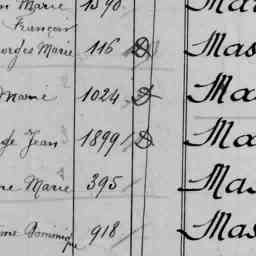 Marie 1390 Ma
François
orges Marie 116 D Mas
Marie 1024 D Mas
Jean 1899 D Mas
ne Marie 395 Mas
Dominique 918 Mas